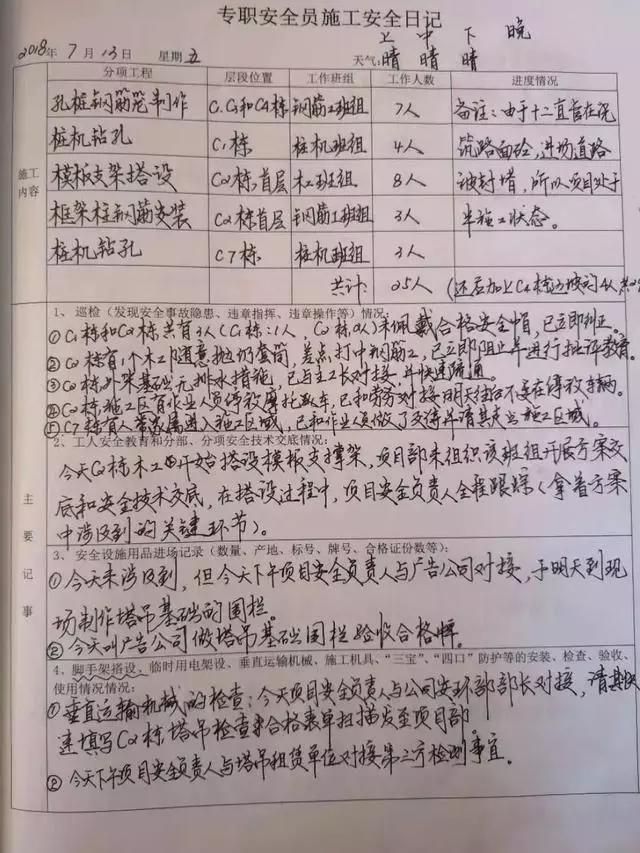 专职安全员施工安全日记
上 中 下 晚
2018年 7月13日 星期五 天气:晴 晴 晴
分项工程 层段位置 工作班组 工作人数 进度情况
施工内容
孔桩钢筋笼制作 钢筋工班组 7人 备注:由于十二直管在浇
桩机钻孔 C1栋 桩机班组 4人 筑路面砼,进场道路
模板支架搭设 C2栋首层 木工班组 8人 被封堵,所以项目处于
框架柱钢筋安装 C2栋首层 钢筋工班组 3人 半施工状态。
桩机钻孔 C7栋 桩机班组 3人
共计: 25人
主要记事
1、巡检(发现安全事故隐患、违章指挥、违章操作等)情况:
①C1栋和C2栋共有3人(C1栋:1人,C2栋2人)未佩戴合格安全帽,已立即纠正。
②C2栋有1个木工随意抛扔套筒,差点打中钢筋工,已立即阻止并进行批评教育。
③C2栋外架基础无排水措施,已与主工长对接,并快速疏通。
④C2栋施工区有作业人员停放摩托车,已和劳务对接明天往后不要在停放车辆。
⑤C7栋有人带家属进入施工区域,已和作业人员做了交待并请其走出施工区域。
2、工人安全教育和分部、分项安全技术交底情况:
今天C2栋木工开始搭设模板支撑架,项目部未组织该班组开展方案交
底和安全技术交底,在搭设过程中,项目安全负责人全程跟踪(拿着方案
中涉及到的关键环节)。
3、安全设施用品进场记录(数量、产地、标号、牌号、合格证份数等):
①今天未涉及到,但今天下午项目安全负责人与广告公司对接,于明天到现
场制作塔吊基础的围栏。
②今天叫广告公司做塔吊基础围栏验收合格牌。
4、脚手架搭设、临时用电架设、垂直运输机械、施工机具、“三宝”、“四口”防护等的安装、检查、验收、
使用情况情况:
①垂直运输机械的检查:今天项目安全负责人与公司安环部部长对接,请其快
速填写C2栋塔吊检查合格表单扫描发至项目部。
②今天下午项目安全负责人与塔吊租赁单位对接第三方检测事宜。